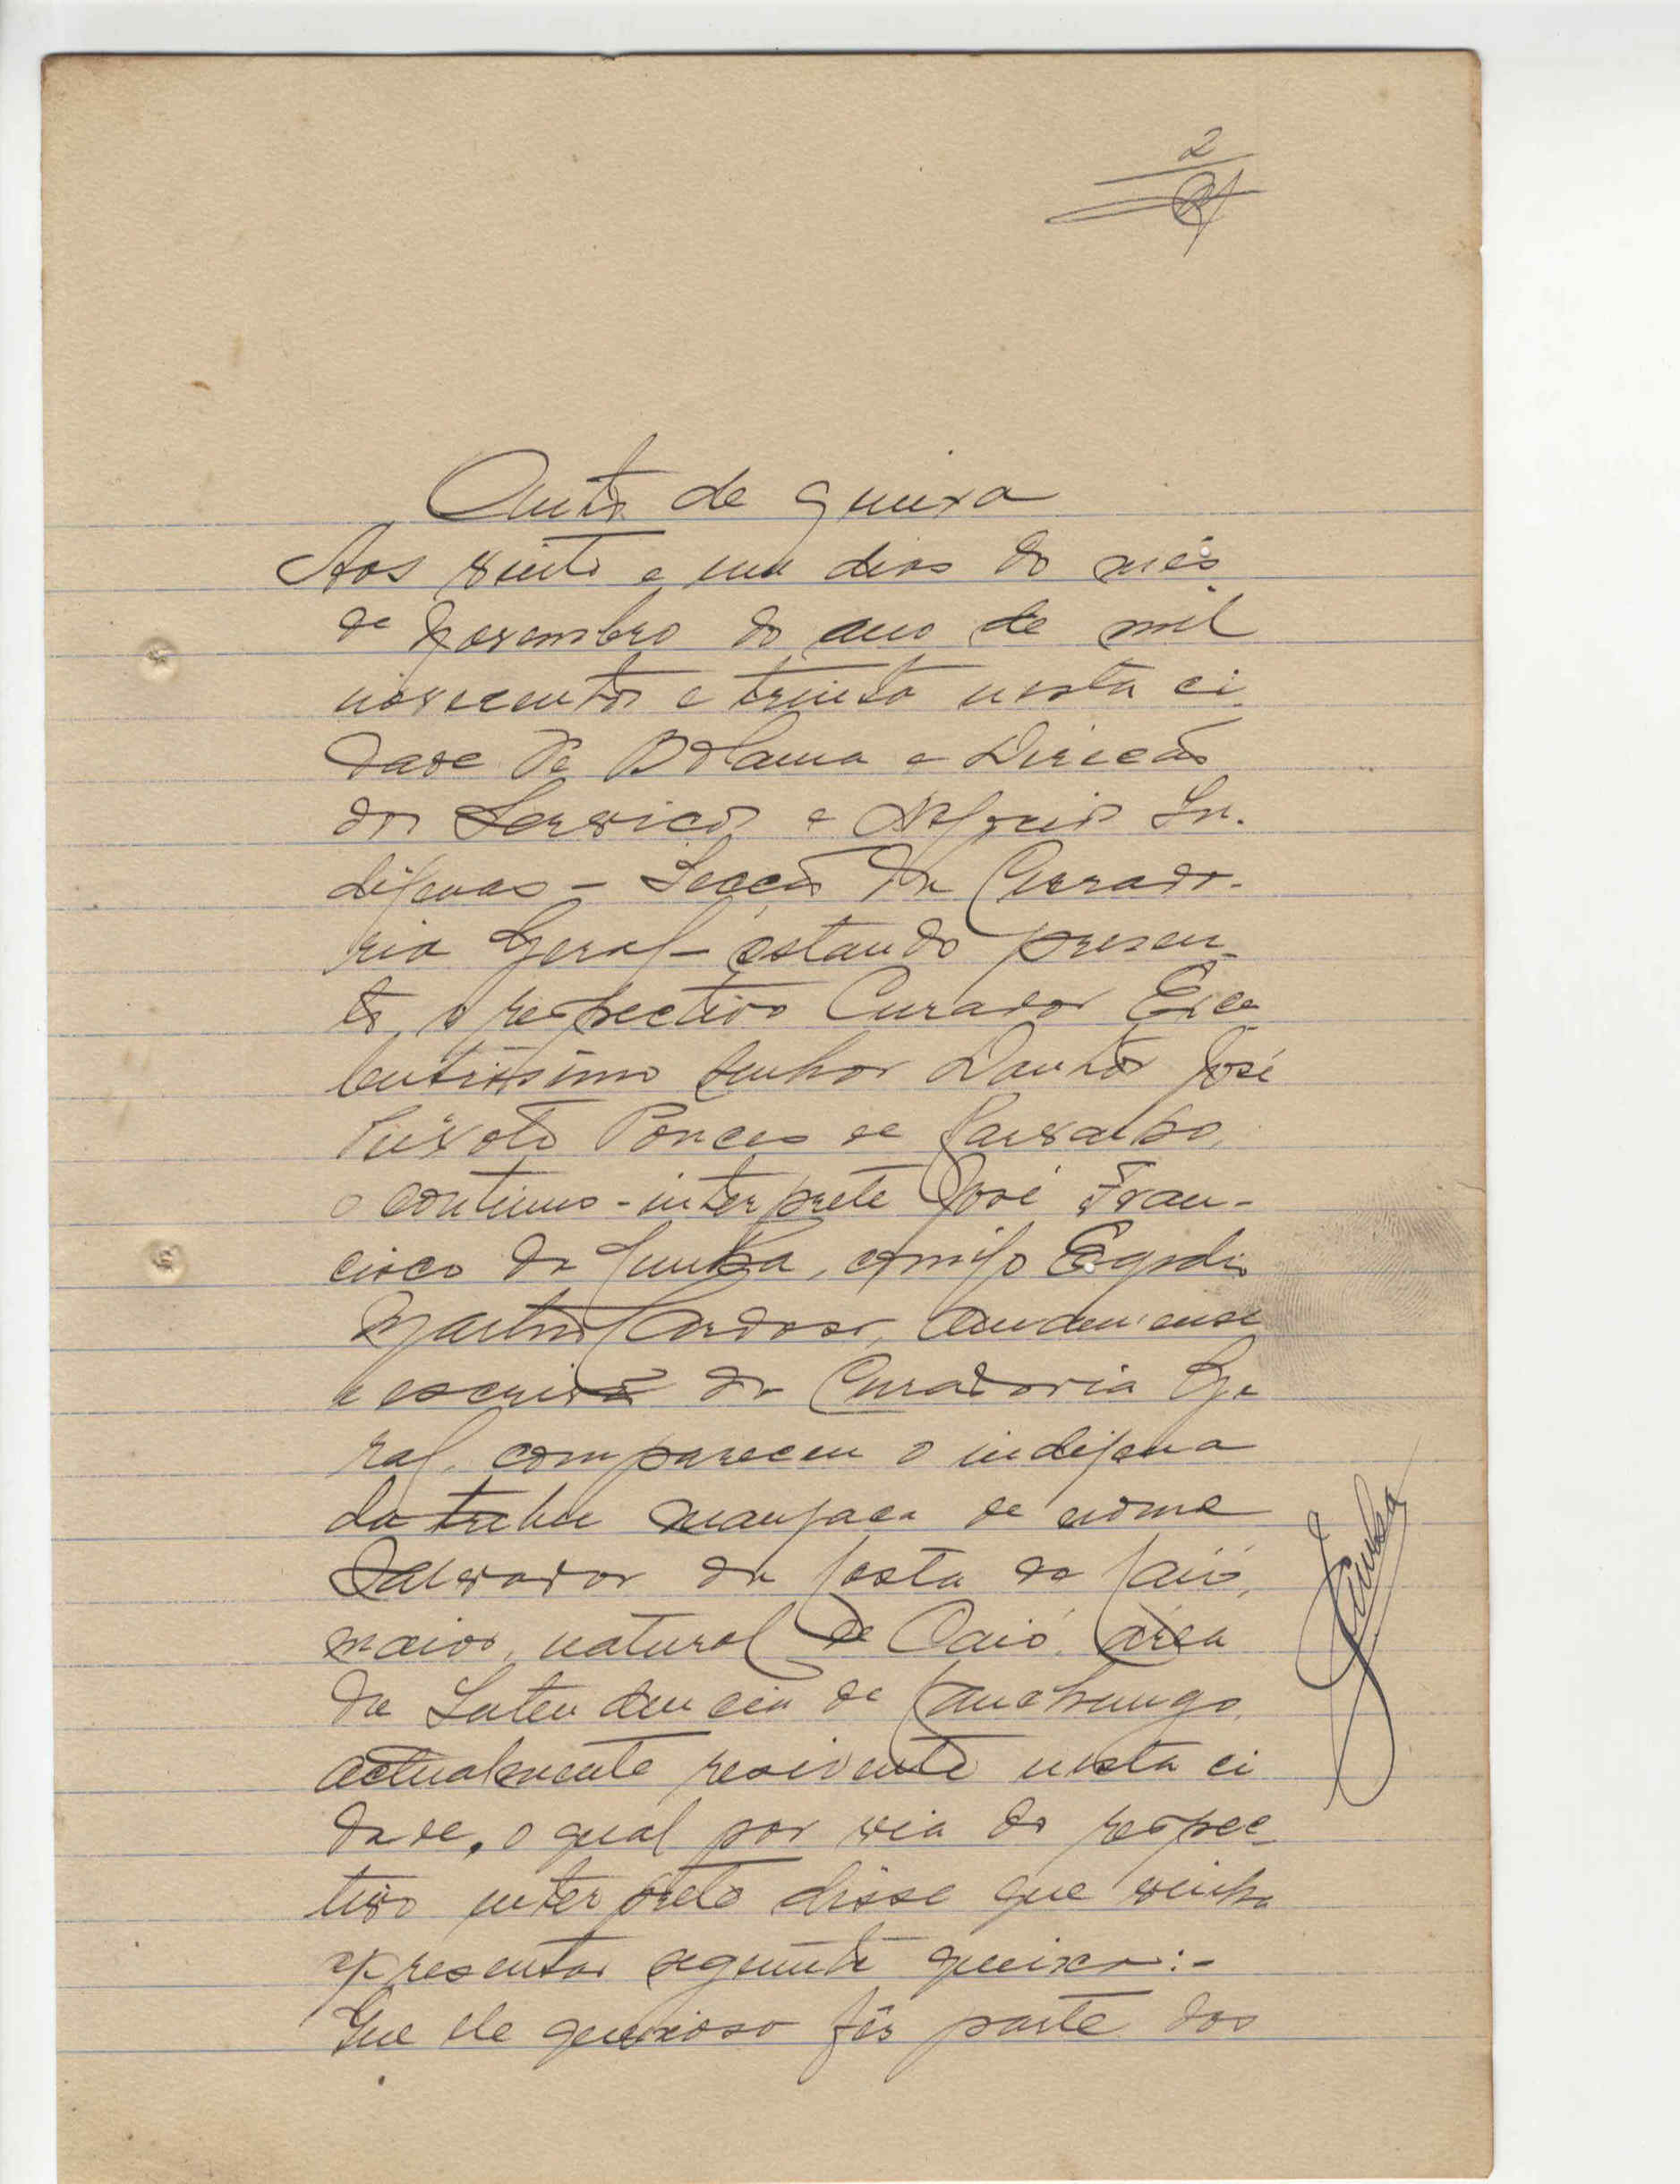 2
Auto de queixa
Aos vinte e um dias do mês
de Novembro do ano de mil
novecentos e trinta nesta ci-
dade de Bolama e Direcção
dos Serviços e Negocios In-
digenas - Secção da Curado-
ria Geral - estando presen-
te o respectivo Curador Exce
lentissimo Senhor Doutor José
Peixoto Ponces de Carvalho,
o continuo-interprete José Fran-
cisco da Cunha, comigo Egidio
Martins Cardoso, amanuense
e escrivão da Curadoria Ge
ral, compareceu o indigena
da tribu manjaca de nome
Salvador da Costa de Caió,
maior, natural de Caió, área
da Intendencia de Canchungo,
actualmente residente nesta ci
dade, o qual por via do respec-
tivo interprete disse que vinha
apresentar seguinte queixa:-
Que ele queixoso fês parte dos
Cunha